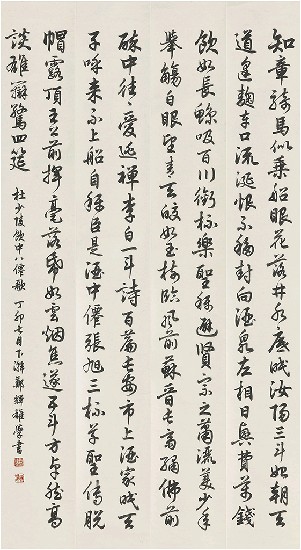 知章騎馬似乘船眼花落井水底眠汝陽三斗始朝天
道逢麴車口流涎恨不移封向酒泉左相日興費萬錢
飲如長鯨吸百川銜杯樂聖稱避賢宗之瀟灑美少年
舉觴白眼望青天皎如玉樹臨風前蘇晉長齋繡佛前
醉中往々愛逃禪李白一斗詩百篇長安市上酒家眠天
子呼來不上船自稱臣是酒中僊張旭三杯草聖傳脫
帽露頂王公前揮毫落紙如雲烟焦遂五斗方卓然高
談雄辯驚四筵
杜少陵飲中八僊歌 丁卯七月下澣鄭輝雄學書